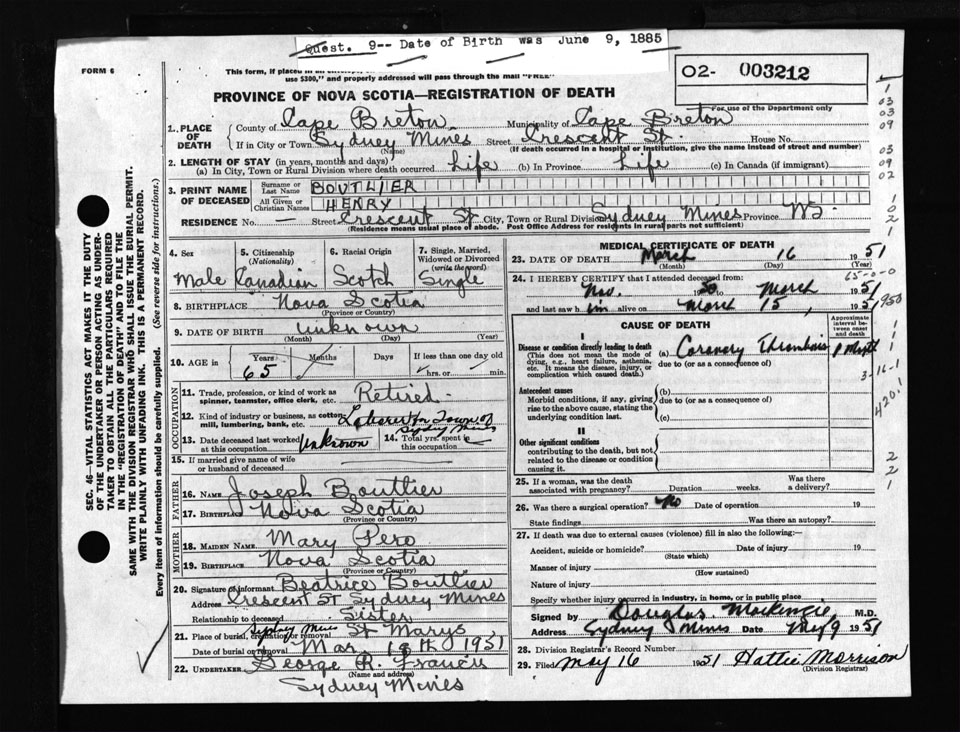 Quest. 9-- Date of Birth was June 9, 1885
FORM 6
use $300," and properly addressed will pass through the mail "FREE"
O2- 003212
For use of the Department only
PROVINCE OF NOVA SCOTIA—REGISTRATION OF DEATH
1. PLACE OF DEATH { County of Cape Breton Municipality of Cape Breton
If in City or Town Sydney Mines Street Crescent St. House No.
(Name) (If death occurred in a hospital or institution, give the name instead of street and number)
2. LENGTH OF STAY (in years, months and days)
(a) In City, Town or Rural Division where death occurred Life (b) In Province Life (c) In Canada (if immigrant)
3. PRINT NAME OF DECEASED { Surname or Last Name BOUTLIER
All Given or Christian Names HENRY
RESIDENCE No. — Street Crescent St City, Town or Rural Division Sydney Mines Province NS.
(Residence means usual place of abode. Post Office Address for residents in rural parts not sufficient)
4. Sex 5. Citizenship (Nationality) 6. Racial Origin 7. Single, Married, Widowed or Divorced (write the word)
Male Canadian Scotch Single
8. BIRTHPLACE Nova Scotia
(Province or Country)
9. DATE OF BIRTH unknown
(Month) (Day) (Year)
10. AGE in Years Months Days If less than one day old
65 hrs. or min.
OCCUPATION
11. Trade, profession, or kind of work as spinner, teamster, office clerk, etc. Retired.
12. Kind of industry or business, as cotton mill, lumbering, bank, etc. Laborer Town of Sydney Mines
13. Date deceased last worked at this occupation Unknown 14. Total yrs. spent in
15. If married give name of wife or husband of deceased
FATHER
16. NAME Joseph Boutlier
17. BIRTHPLACE Nova Scotia
(Province or Country)
MOTHER
18. MAIDEN NAME Mary Pero
19. BIRTHPLACE Nova Scotia
(Province or Country)
20. Signature of informant Beatrice Boutlier
Address Crescent St Sydney Mines
Relationship to deceased Sister
21. Place of burial, cremation or removal Sydney Mines St Marys
Date of burial or removal Mar 18th 1951
22. UNDERTAKER George R. Francis
(Name and address)
Sydney Mines
MEDICAL CERTIFICATE OF DEATH
23. DATE OF DEATH March 16 1951
(Month) (Day) (Year)
65-0-0
24. I HEREBY CERTIFY that I attended deceased from:
Nov. 1950 to March 1951
and last saw him alive on March 15, 1951
CAUSE OF DEATH
Approximate interval between onset and death
I
Disease or condition directly leading to death (a) Coronary Thrombosis
(This does not mean the mode of dying, e.g., heart failure, asthenia, etc. It means the disease, injury, or complication which caused death.)
due to (or as a consequence of)
Antecedent causes (b)
Morbid conditions, if any, giving rise to the above cause, stating the underlying condition last.
due to (or as a consequence of)
(c)
II
Other significant conditions contributing to the death, but not related to the disease or condition causing it.
25. If a woman, was the death associated with pregnancy? Duration weeks. Was there a delivery?
26. Was there a surgical operation? No Date of operation 19
State findings Was there an autopsy?
27. If death was due to external causes (violence) fill in also the following:—
Accident, suicide or homicide? Date of injury 19
(State which)
Manner of injury
(How sustained)
Nature of injury
Specify whether injury occurred in industry, in home, or in public place
Signed by Douglas Mackenzie M.D.
Address Sydney Mines Date May 9 1951
28. Division Registrar's Record Number
29. Filed May 16 1951 Hattie Morrison
(Division Registrar)
SEC. 46—VITAL STATISTICS ACT MAKES IT THE DUTY
OF THE UNDERTAKER OR PERSON ACTING AS UNDER-
TAKER TO OBTAIN ALL THE PARTICULARS REQUIRED
IN THE "REGISTRATION OF DEATH" AND TO FILE THE
SAME WITH THE DIVISION REGISTRAR WHO SHALL ISSUE THE BURIAL PERMIT.
WRITE PLAINLY WITH UNFADING INK. THIS IS A PERMANENT RECORD.
Every item of information should be carefully supplied. (See reverse side for instructions.)